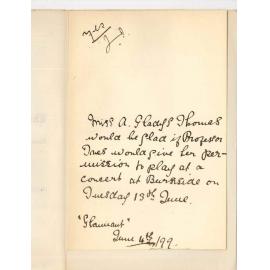 yes
Miss A. Gladys Thomas
would be glad if Professor
Ines would give her per-
mission to play at a
concert at Burnside on
Tuesday 13th June.
"Glannant"
June 4th/99.